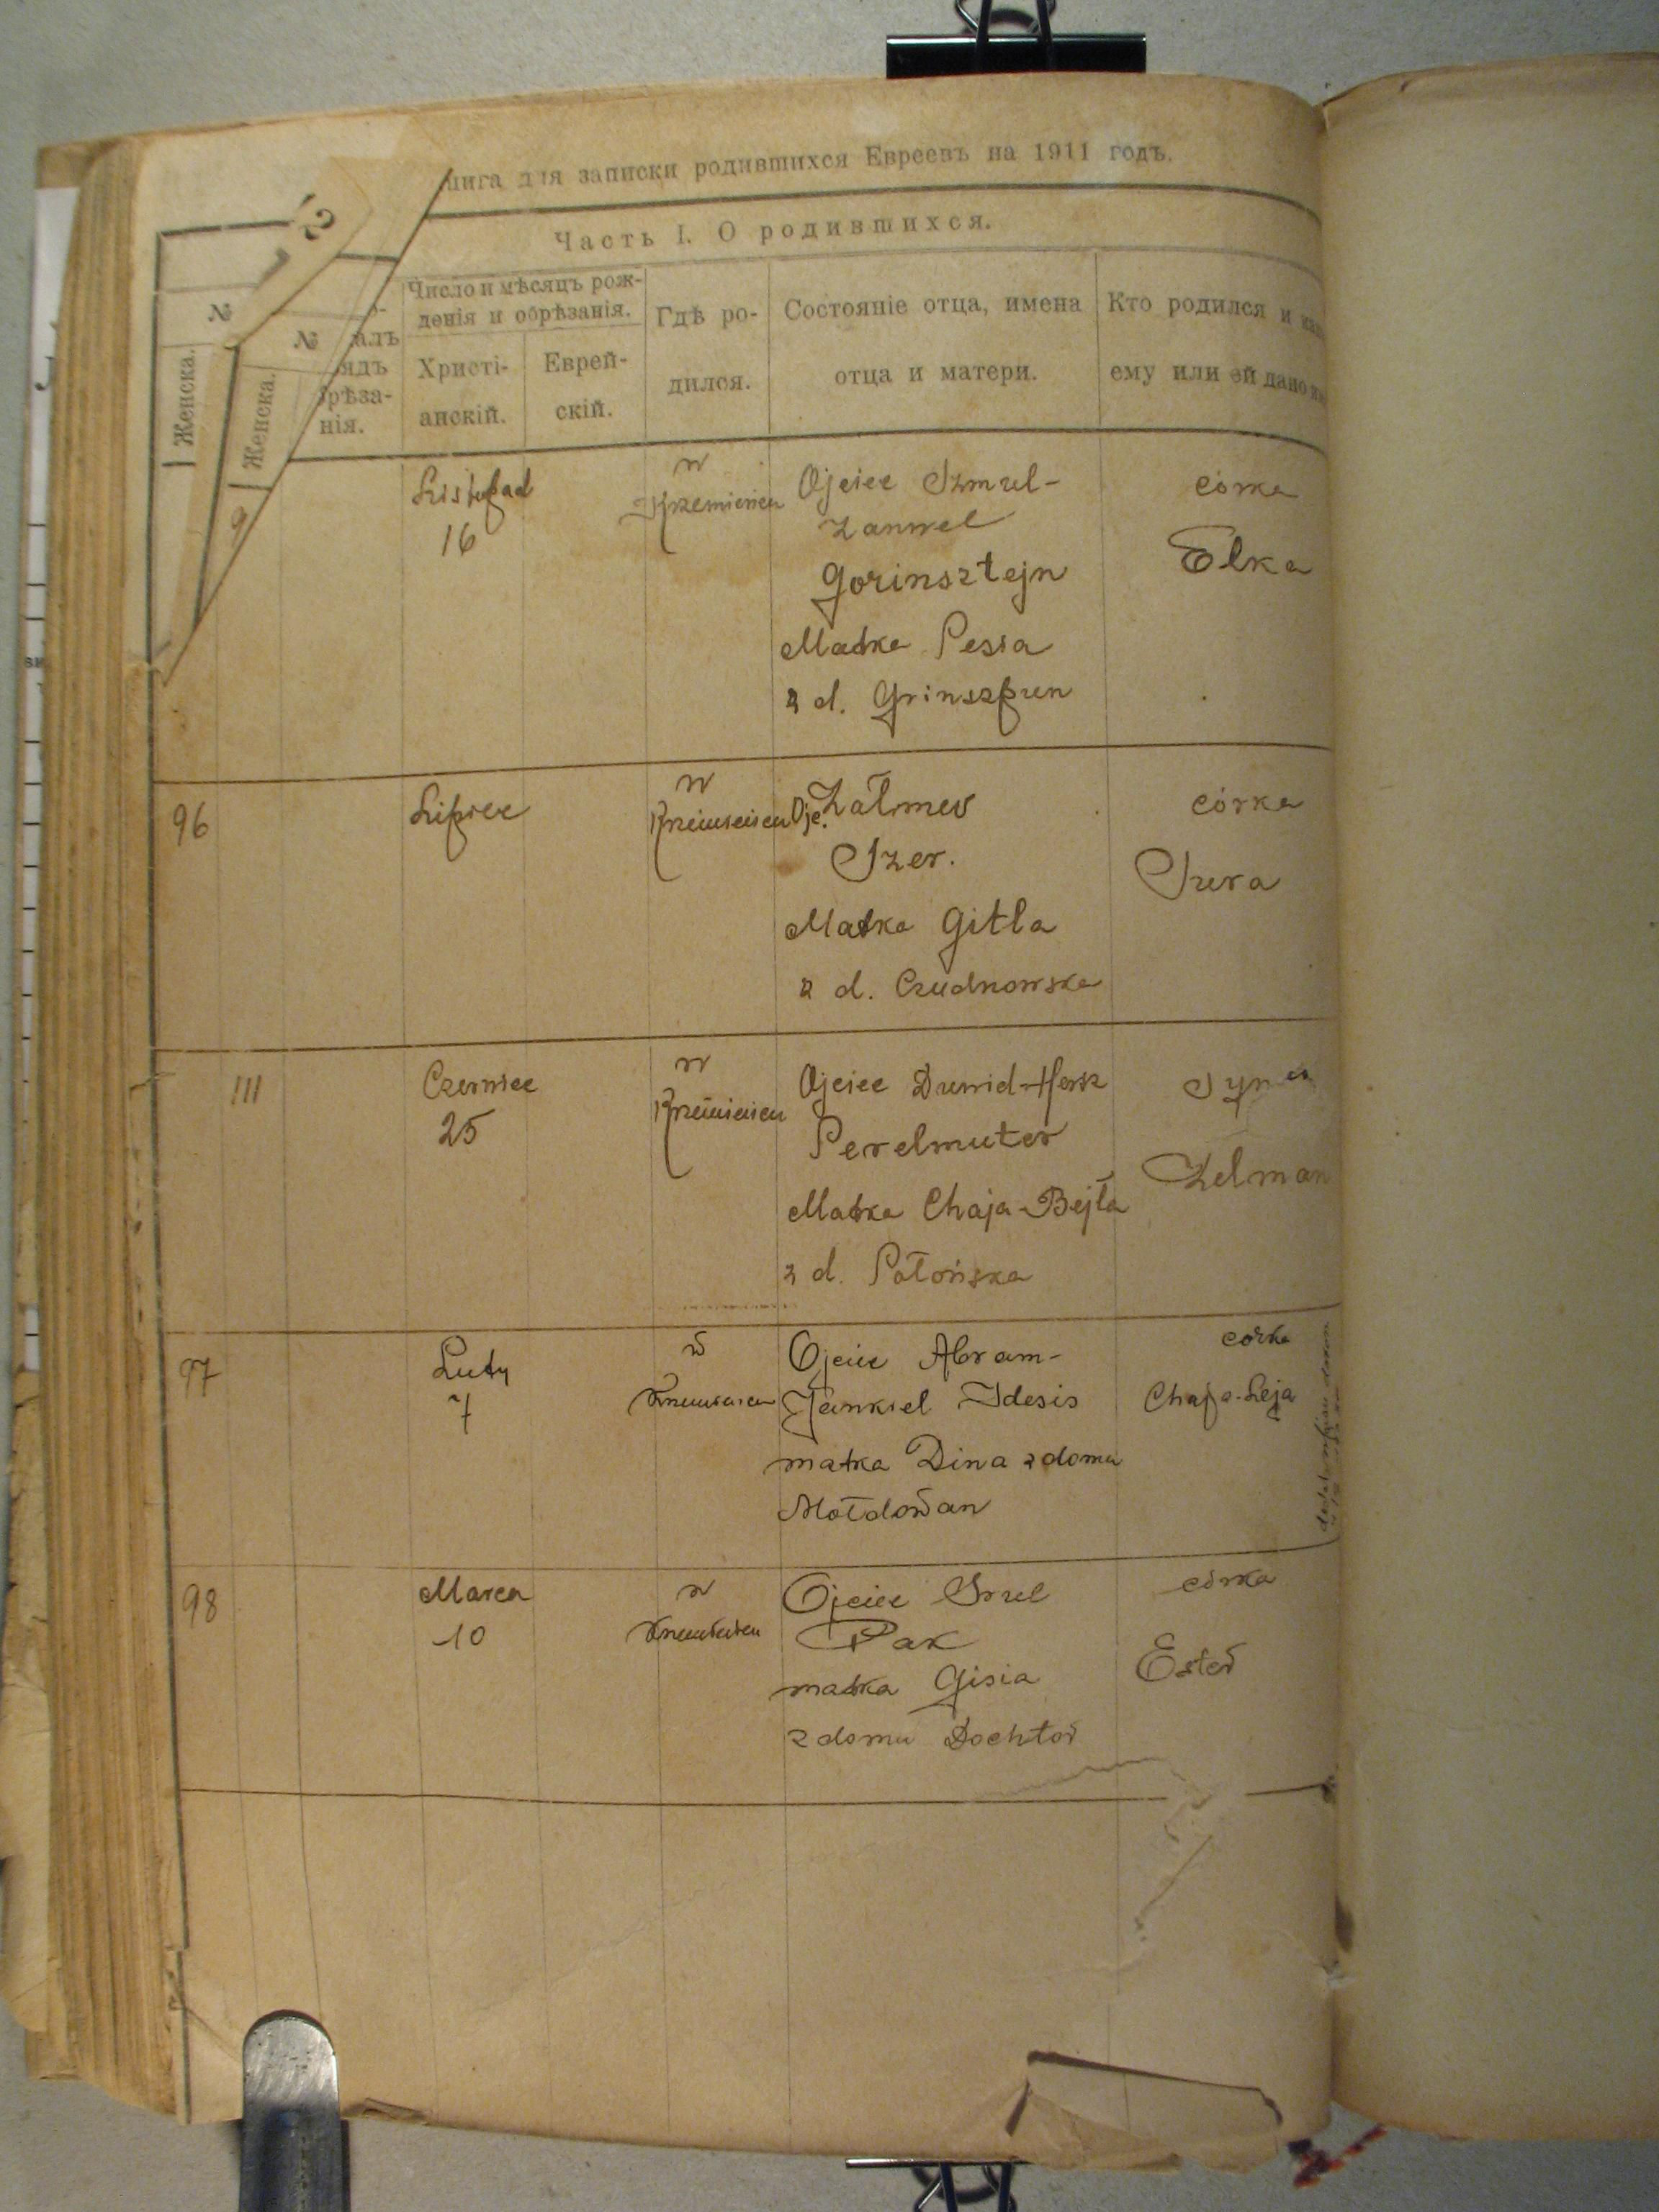 нига для записки родившихся Евреевъ на 1911 годъ.
Часть I. О родившихся.
12
№
Женска.
№
Женска.
алъ
ядъ
брѣза-
нія.
Число и мѣсяцъ рож-
денія и обрѣзанія.
Христі-
анскій.
Еврей-
скій.
Гдѣ ро-
дился.
Состояніе отца, имена
отца и матери.
Кто родился и как
ему или ей дано и
9
Listopad
16
w
Krzemieńcu
Ojciec Szmul-
Zanwel
Gorinsztejn
Matka Pesia
z d. Grinszpun
córka
Elka
96
Lipiec
w
Krzemieńcu
Ojc. Załmen
Szer.
Matka Gitla
z d. Czudnowska
córka
Szera
111
Czerwiec
25
w
Krzemieńcu
Ojciec Duwid-Hersz
Perelmuter
Matka Chaja-Bejła
z d. Połońska
Syn
Zelman
97
Luty
7
w
Krzemieńcu
Ojciec Abram-
Jankiel Idesis
matka Dina z domu
Mołdowan
córka
Chaja-Leja
98
Marca
10
w
Krzemieńcu
Ojciec Srul
Pak
matka Gisia
z domu Dochtor
córka
Ester